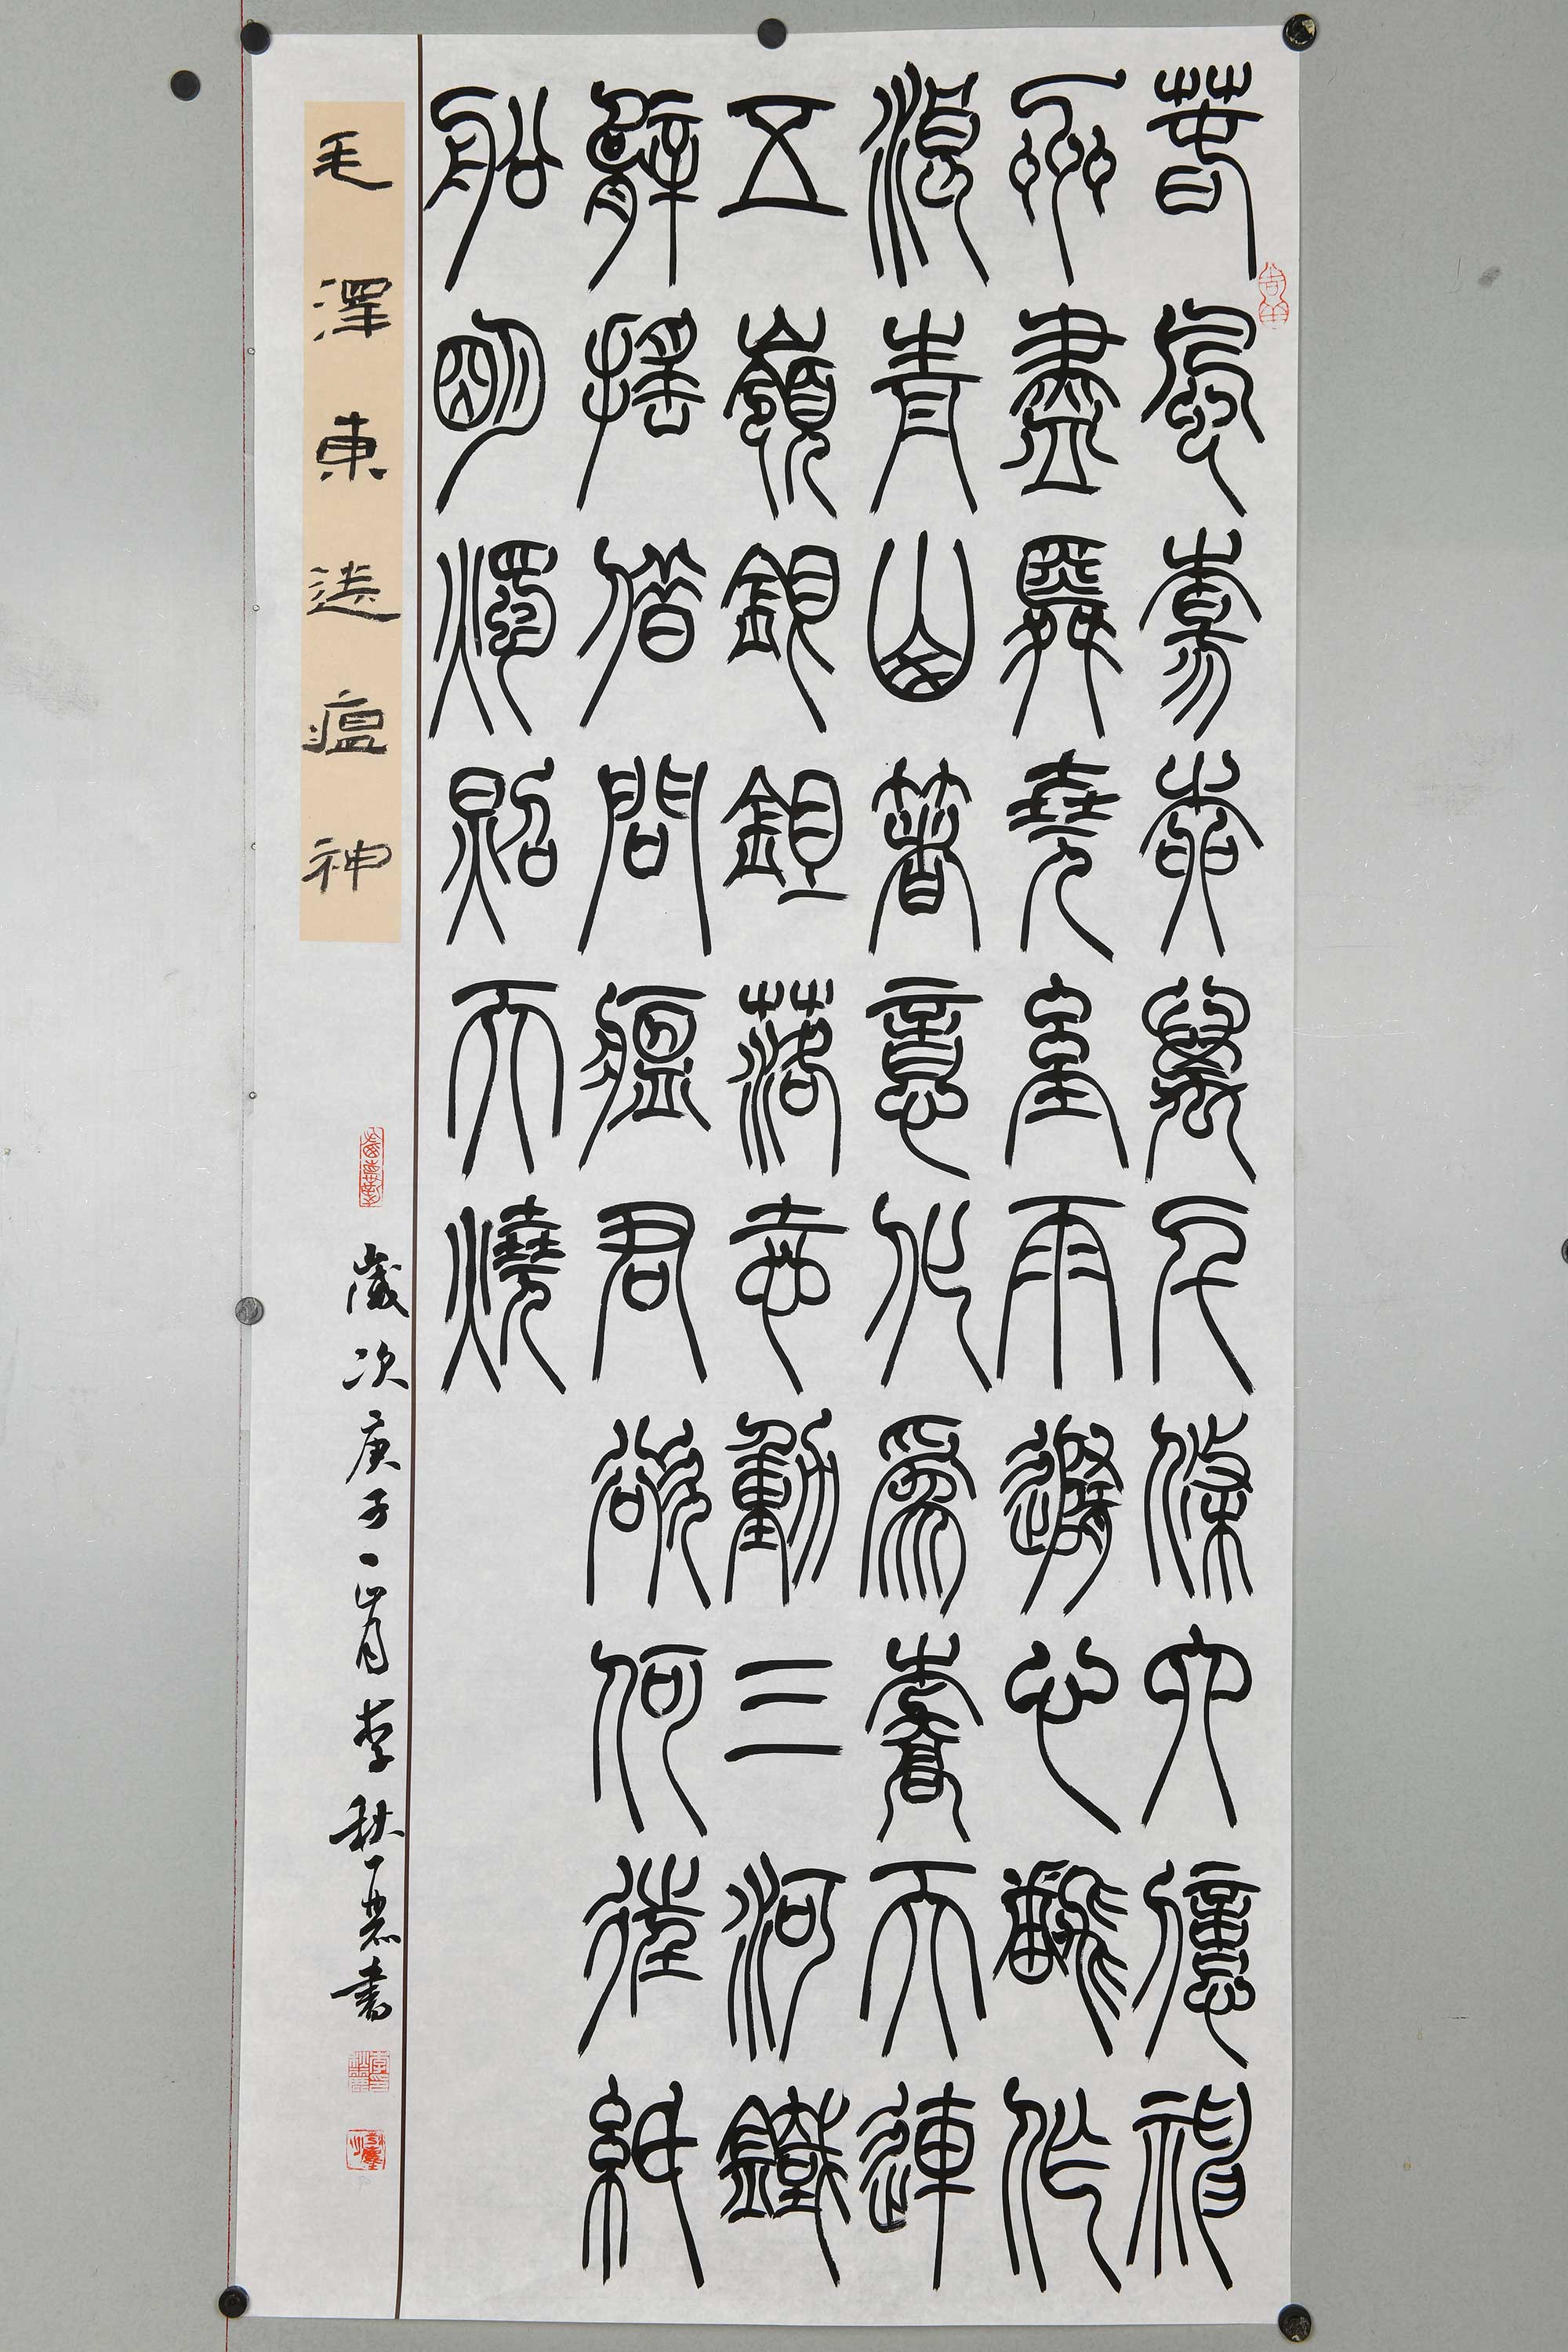 春風楊柳萬千條六億神
州盡舜堯紅雨隨心翻作
浪青山著意化為橋天連
五嶺銀鉏落地動三河鐵
臂搖借問瘟君欲何往紙
船明燭照天燒
毛澤東送瘟神
歲次庚子正月李秋書